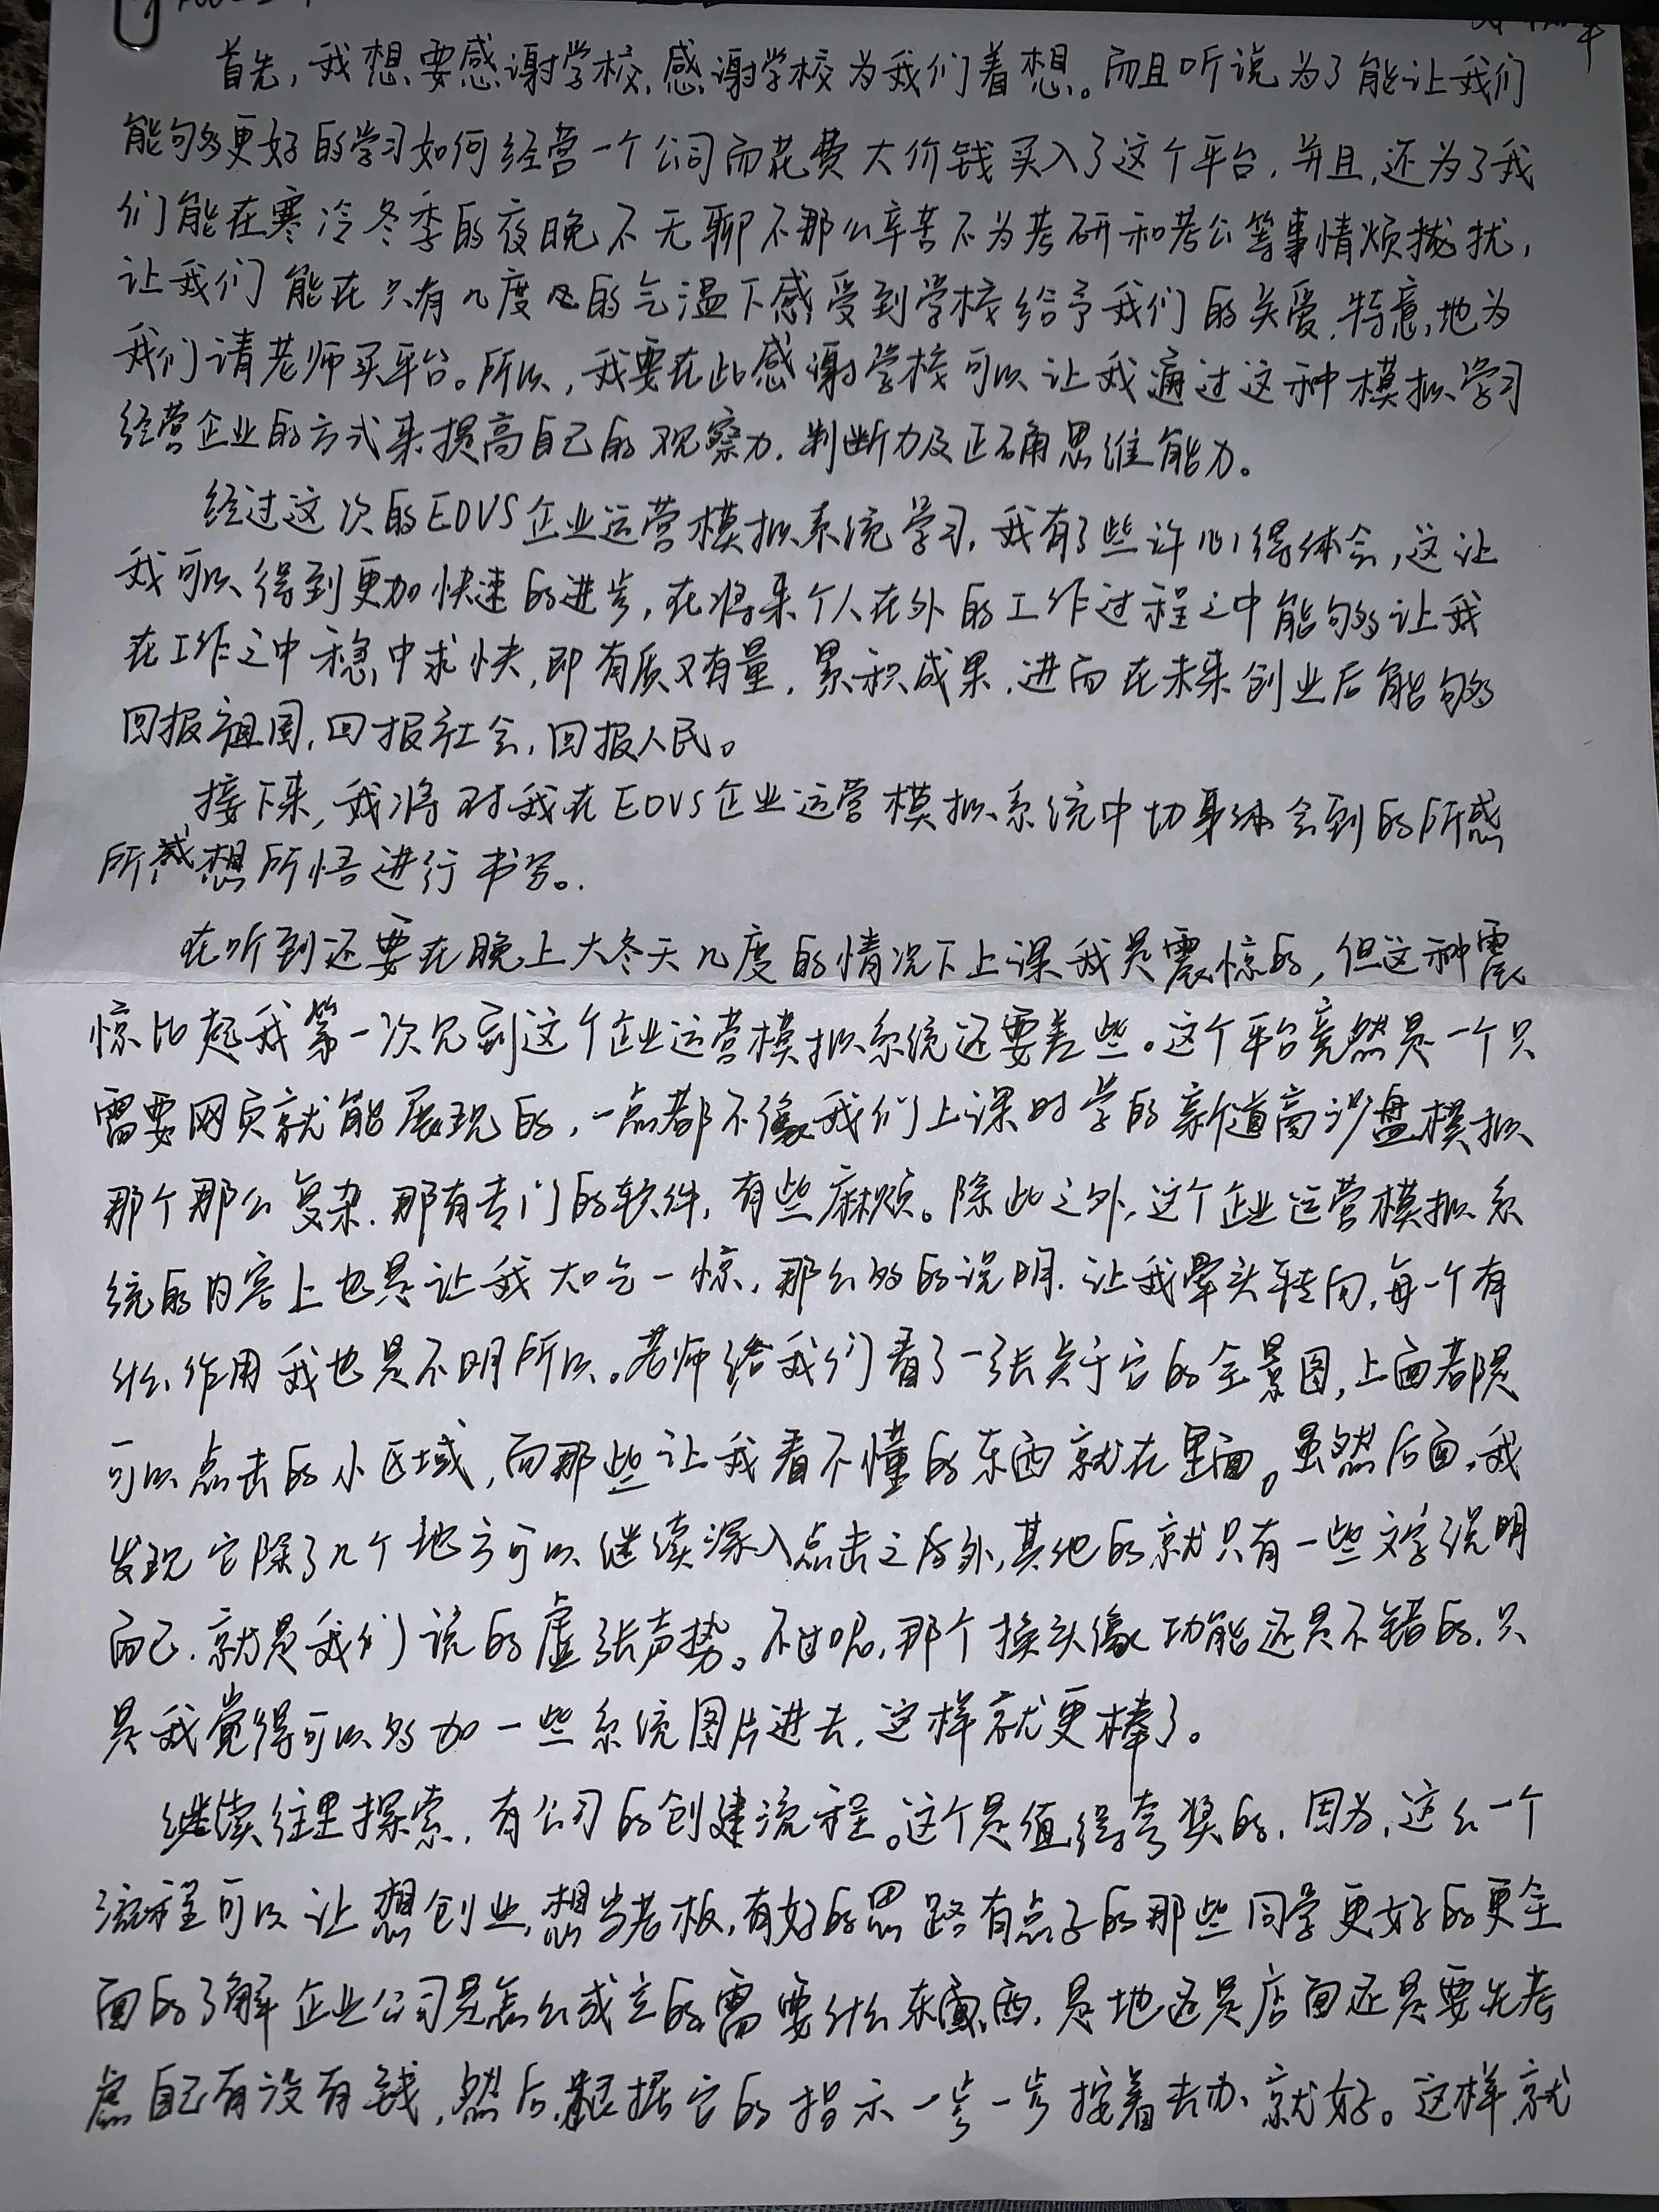 首先，我想要感谢学校，感谢学校为我们着想。而且听说为了能让我们
能够更好的学习如何经营一个公司而花费大价钱买入了这个平台，并且，还为了我
们能在寒冷冬季的夜晚不无聊不那么辛苦不为考研和考公等事情烦拢扰，
让我们能在只有几度的气温下感受到学校给予我们的关爱，特意地为
我们请老师买平台。所以，我要在此感谢学校可以让我通过这种模拟学习
经营企业的方式来提高自己的观察力，判断力及正确思维能力。
经过这次的EDVS企业运营模拟系统学习，我有了些许心得体会，这让
我可以得到更加快速的进步，在将来个人在外的工作过程之中能够让我
在工作之中稳中求快，即有质又有量，累积成果，进而在未来创业后能够
回报祖国，回报社会，回报人民。
接下来，我将对我在EDVS企业运营模拟系统中切身体会到的所感
所想所悟进行书写。
在听到还要在晚上大冬天几度的情况下上课我是震惊的，但这种震
惊比起我第一次见到这个企业运营模拟系统还要差些。这个平台竟然是一个只
需要网页就能展现的，一点都不像我们上课时学的新道商沙盘模拟
那个那么复杂，那有专门的软件，有些麻烦。除此之外，这个企业运营模拟系
统的内容上也是让我大吃一惊，那么多的说明，让我晕头转向，每一个有
什么作用我也是不明所以。老师给我们看了一张关于它的全景图，上面都是
可以点击的小区域，而那些让我看不懂的东西就在里面。虽然后面，我
发现它除了几个地方可以继续深入点击之外，其他的就只有一些文字说明
而已，就是我们说的虚张声势。不过呢，那个换头像功能还是不错的，只
是我觉得可以多加一些系统图片进去，这样就更棒了。
继续往里探索，有公司的创建流程。这个是值得夸奖的，因为，这么一个
流程可以让想创业，想当老板，有好的思路有点子的那些同学更好的更全
面的了解企业公司是怎么成立的需要什么东西，是地还是店面还是要先考
虑自己有没有钱，然后，根据它的指示一步一步接着去办就好。这样，就